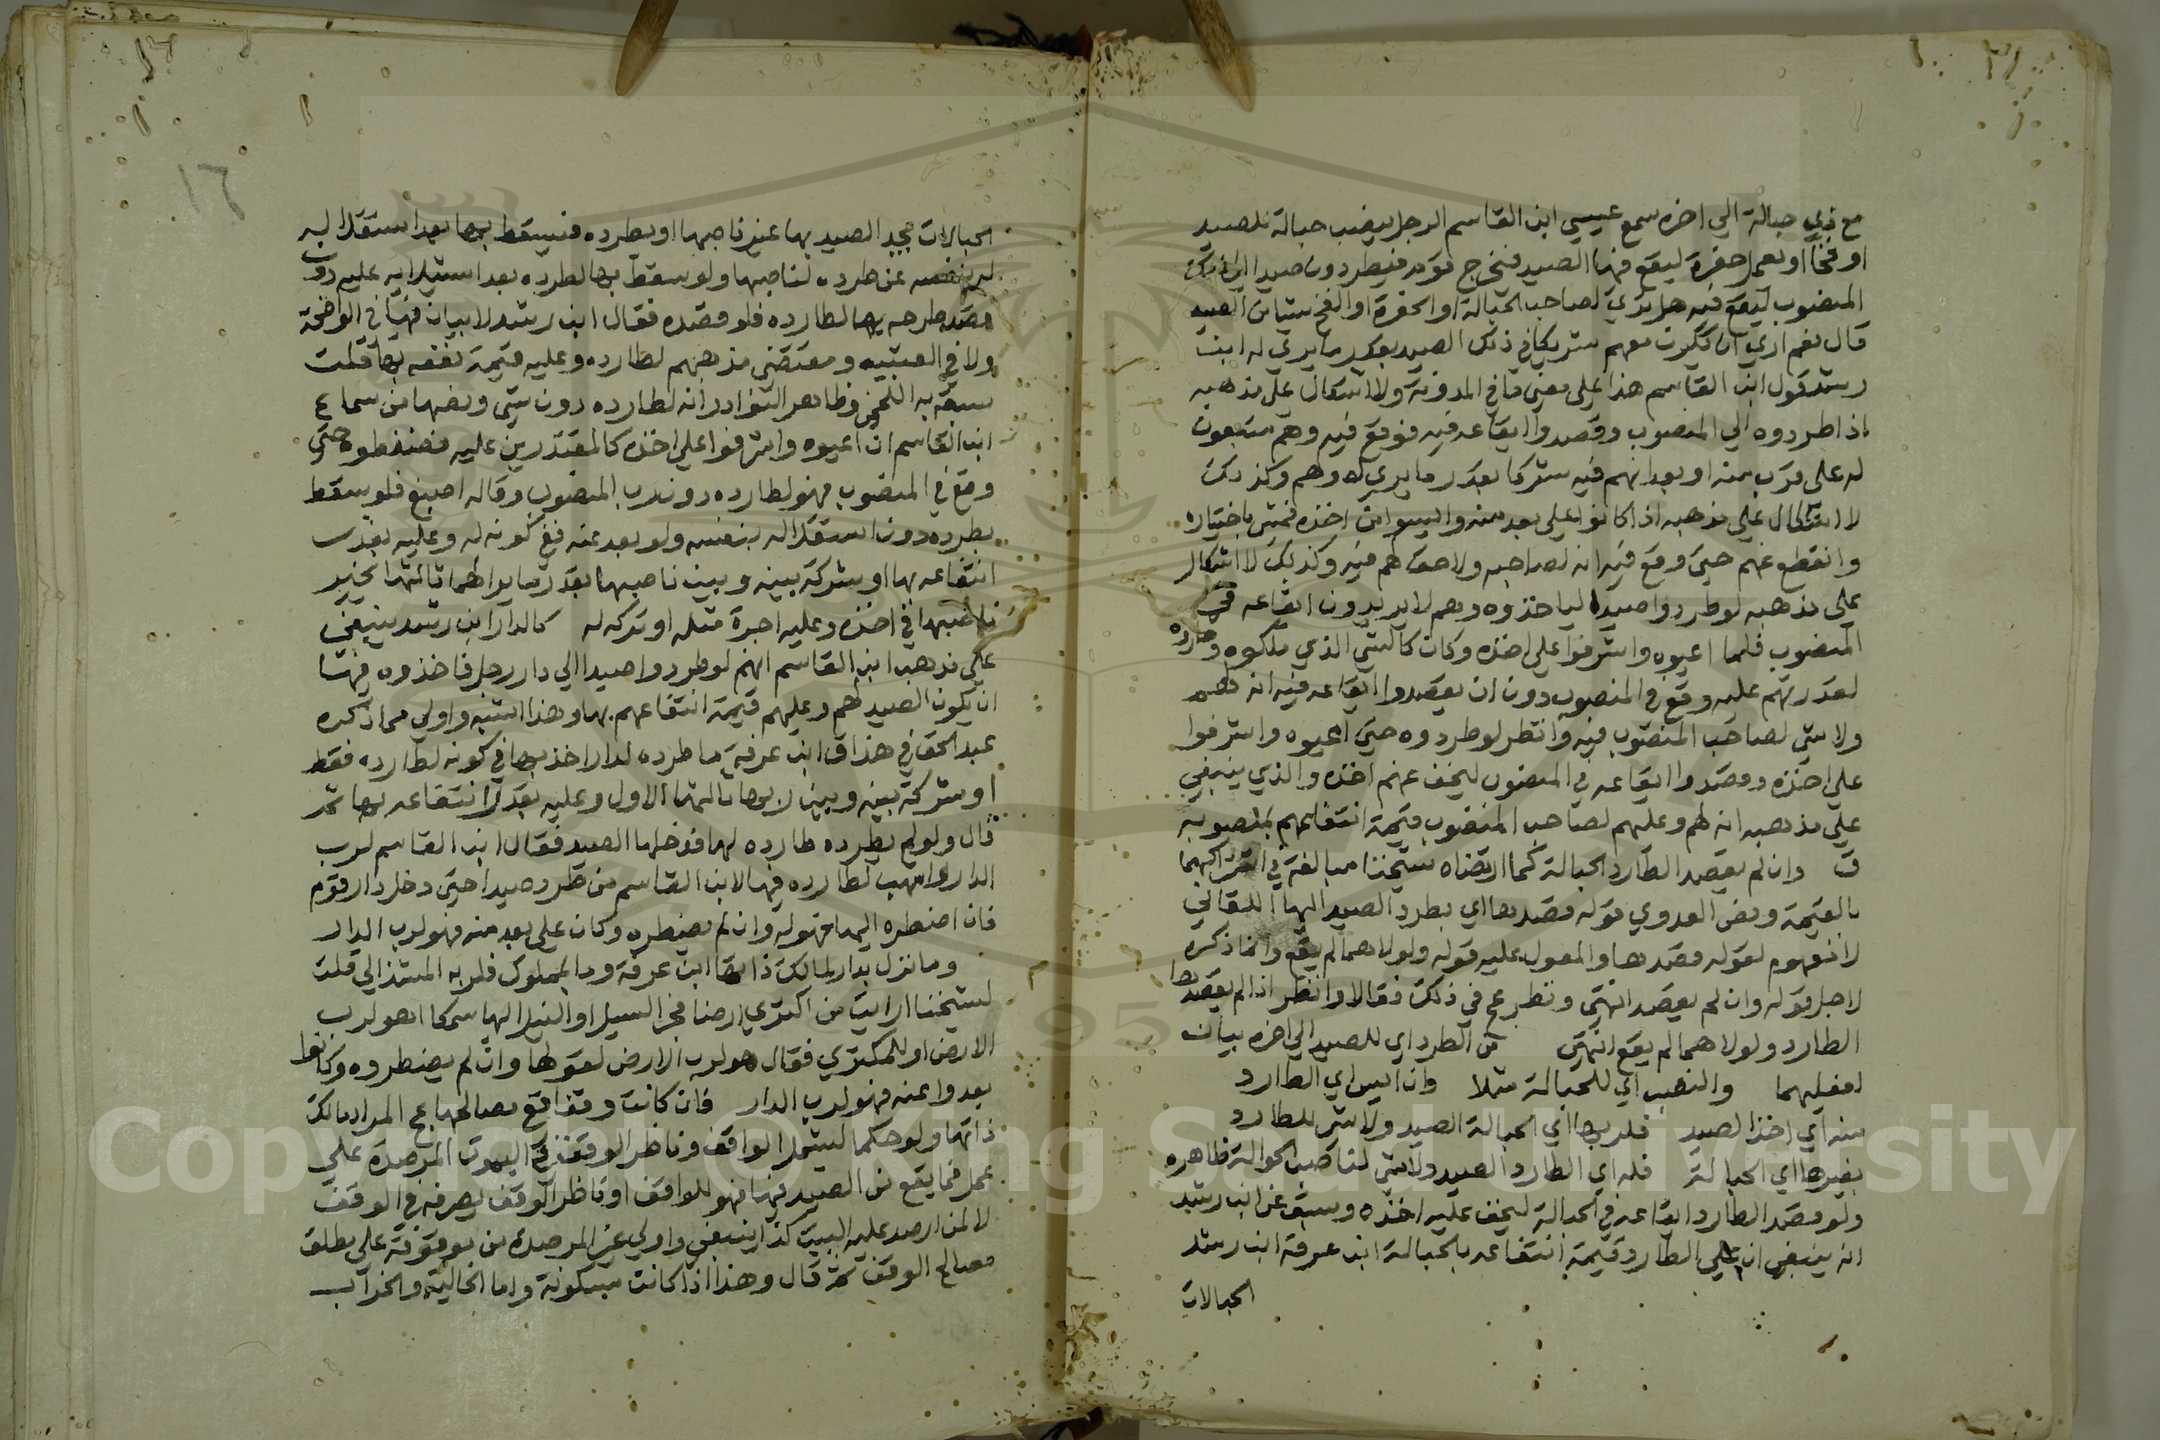 مع ذي حبالة الي اخره سمع عيسي ابن القاسم الرجل ينصب حبالة للصيد
او فخا او يعمل حفرة ليقع فيها الصيد فيخرج قوم فيطردون صيدا الي ذلك
المنصوب ليقع فيه هل تري لصاحب الحبالة او الحفرة او الفخ شيا من الصيد
قال نعم اري ان يكون معهم شريكا في ذلك الصيد بقدر ما يري له ابن
رشد قول ابن القاسم هذا علي معني ما في المدونة ولا اشكال علي مذهبه
اذا طردوه الي المنصوب وقصدوا ايقاعه فيه فوقع فيه وهم متبعون
له علي قرب منه او بعد انهم فيه شركا بقدر ما يري له وهم وكذلك
لا اشكال علي مذهبه اذا كانوا علي بعد منه وايسوا من اخذه فمشي باختياره
وانقطع عنهم حتي وقع فيه انه لصاحبه ولا حق لهم فيه وكذلك لا اشكال
علي مذهبه لو طردوا صيدا لياخذوه وهم لا يريدون ايقاعه في
المنصوب فلما اعيوه واشرفوا علي اخذه وكان كالشي الذي ملكوه وحازوه
لقدرتهم عليه وقع في المنصوب دون ان يقصدوا ايقاعه فيه انه لهم
ولا شي لصاحب المنصوب فيه وانظر لو طردوه حتي اعيوه واشرفوا
علي اخذه وقصدوا ايقاعه في المنصوب ليخف عنهم اخذه والذي ينبغي
علي مذهبه انه لهم وعليهم لصاحب المنصوب قيمة انتفاعهم بمنصوبه
ق وان لم يقصد الطارد الحبالة كما ارتضاه شيخنا مبالغة في اشتراكهما
بالقيمة ونص العدوي قوله قصدها اي بطرد الصيد اليها اللقاني
لا مفهوم لقوله قصدها والمعول عليه قوله ولولاهما لم يقع وانما ذكره
لاجل قوله وان لم يقصد انتهي ونظر عج في ذلك فقال وانظر اذا لم يقصدها
الطارد ولولاهما لم يقع انتهي من الطرد اي للصيد الي اخره بيان
لفعليهما والنصب اي للحبالة مثلا وان ايس اي الطارد
منه اي اخذ الصيد فلربها اي الحبالة الصيد ولا شي للطارد
بغيرها اي الحبالة فله اي الطارد الصيد ولا شي لناصب الحوالة ظاهره
ولو قصد الطارد ايقاعه في الحبالة ليخف عليه اخذه وسبق عن ابن رشد
انه ينبغي ان علي الطارد قيمة انتفاعه بالحبالة ابن عرفة ابن رشد
الحبالات
١٦
الحبالات يجد الصيد بها غير ناصبها او يطرده فيسقط بها بعد استقلاله
بنفسه عن طرده لناصبها ولو سقط بها لطرده بعد استيلايه عليه دون
قصد طرحه بها لطارده فلو قصده فقال ابن رشد لا بيان فيها في الواضحة
ولا في العتبيه ومقتضي مذهبهم لطارده وعليه قيمة نفعه بها قلت
سبقه به اللخمي وظاهر النوادر انه لطارده دون شي ونصها من سماع
ابن القاسم ان اعيوه واشرفوا علي اخذه كالمقتدرين عليه فضغطوه حتي
وقع في المنصوب فهو لطارده دون رب المنصوب وقاله اصبغ فلو سقط
بطرده دون استقلاله بنفسه ولو بعد عنه ففي كونه له وعليه بقدر
انتفاعه بها او شركة بينه وبين ناصبها بقدر ما يرا لهما ثالثها يخير
ناصبها في اخذه وعليه اجرة مثله او تركه له كالدار ابن رشد ينبغي
علي مذهب ابن القاسم انهم لو طردوا صيدا الي دار رجل فاخذوه فيها
ان يكون الصيد لهم وعليهم قيمة انتفاعهم بها وهذا اشبه واولي مما ذكره
عبد الحق في هذا ق ابن عرفة ما طرده لدار اخذ بها في كونه لطارده فقط
او شركة بينه وبين ربها ثالثها الاول وعليه بقدر انتفاعه بها ثم
قال ولو لم يطرده طارده لها فدخلها الصيد فقال ابن القاسم لرب
الدار واشهب لطارده فيها لابن القاسم من طرد صيدا حتي دخل دار قوم
فان اضطره اليها فهو له وان لم يضطره وكان علي بعد منه فهو لرب الدار
وما نزل بدار لمالك ذاتها ابن عرفة وبالمملوك فلربه المشذالي قلت
لشيخنا ارايت من اكتري ارضا فجر السيل او النيل اليها سمكا اهو لرب
الارض او للمكتري فقال هو لرب الارض لقولها وان لم يضطروه وكانوا
بعدوا عنه فهو لرب الدار فان كانت وقفا فع مصالحها عج المراد بمالك
ذاتها ولو حكما ليشمل الواقف وناظر الوقف ففي البيوت المرصدة علي
عمل فما يقع من الصيد فيها فهو للواقف او ناظر الوقف يصرفه في الوقف
لا لمن ارصد عليه البيت كذا ينبغي واولي غير المرصدة من موقوفة علي مطلق
مصالح الوقف ثم قال وهذا اذا كانت مسكونة واما الخالية والخراب
Copyright © King Saud University